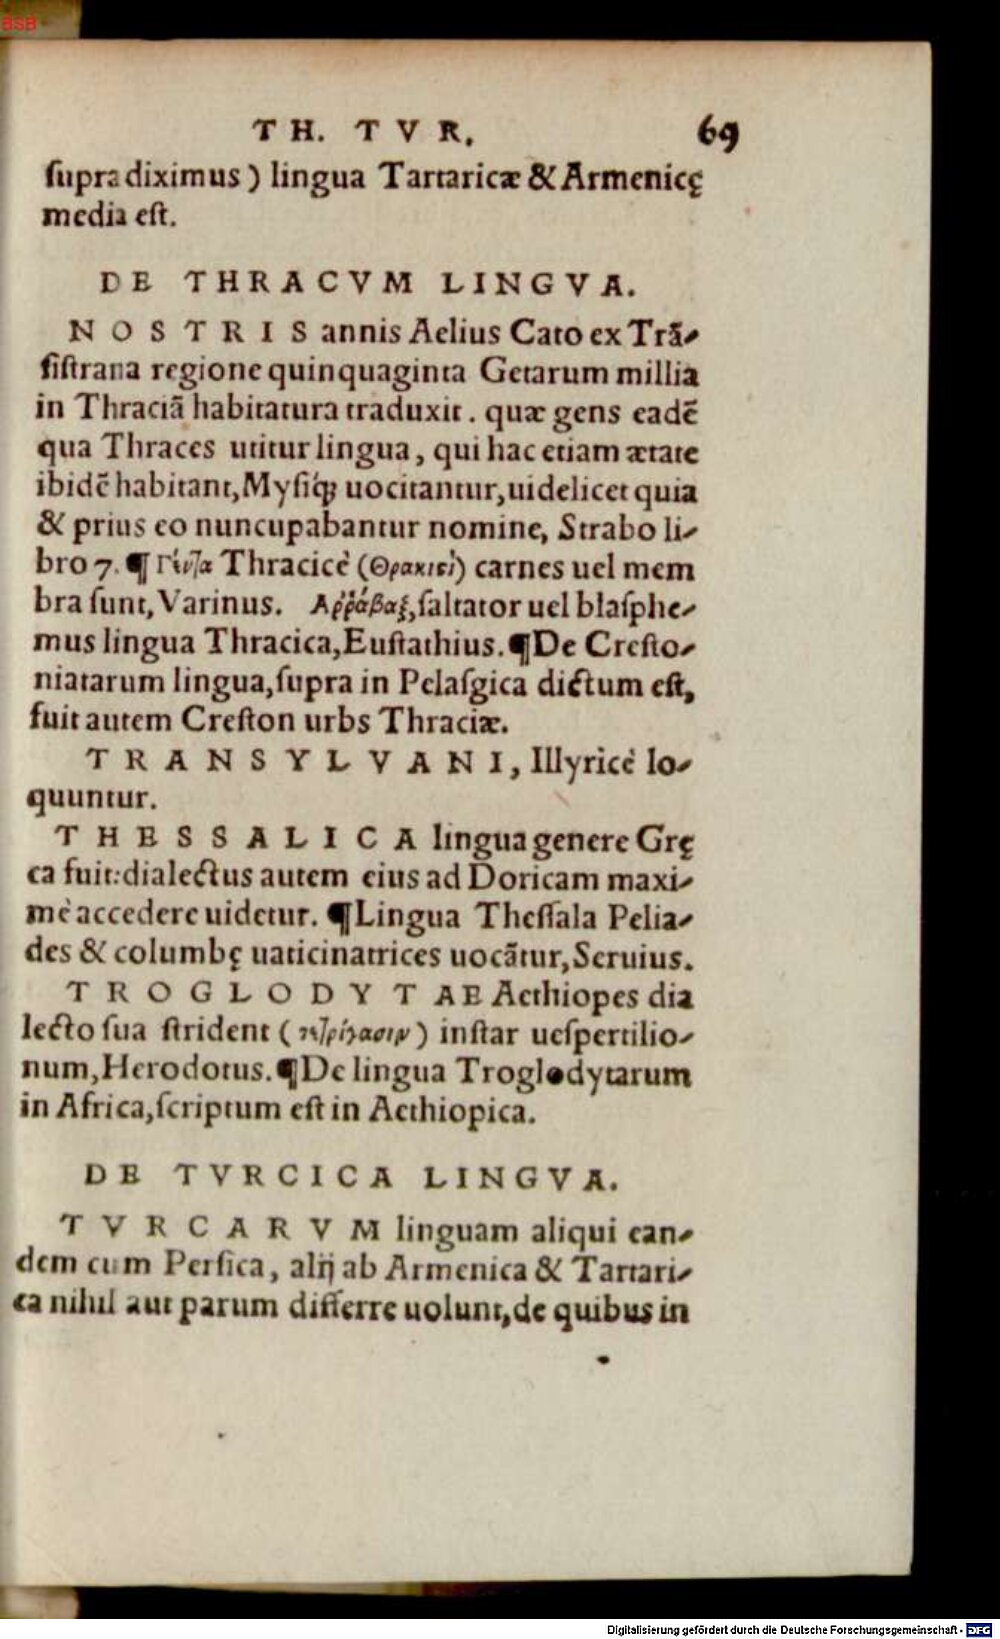 BSB
TH. TVR. 69
ſupra diximus) lingua Tartaricæ & Armenicę
media eſt.
DE THRACVM LINGVA.
NOSTRIS annis Aelius Cato ex Trã-
ſiſtrana regione quinquaginta Getarum millia
in Thraciã habitatura traduxit. quæ gens eadẽ
qua Thraces utitur lingua, qui hac etiam ætate
ibidẽ habitant, Myſiq́; uocitantur, uidelicet quia
& prius eo nuncupabantur nomine, Strabo li-
bro 7. ¶ Thracicè (Θρακιστὶ) carnes uel mem
bra ſunt, Varinus. Αῤῥάβαξ, ſaltator uel blaſphe-
mus lingua Thracica, Euſtathius. ¶ De Creſto-
niatarum lingua, ſupra in Pelaſgica dictum eſt,
fuit autem Creſton urbs Thraciæ.
TRANSYLVANI, Illyricè lo-
quuntur.
THESSALICA lingua genere Grę
ca fuit: dialectus autem eius ad Doricam maxi-
mè accedere uidetur. ¶ Lingua Theſſala Pelia-
des & columbę uaticinatrices uocãtur, Seruius.
TROGLODYTAE Aethiopes dia
lecto ſua ſtrident (τετρίγασιν) inſtar ueſpertilio-
num, Herodotus. ¶ De lingua Troglodytarum
in Africa, ſcriptum eſt in Aethiopica.
DE TVRCICA LINGVA.
TVRCARVM linguam aliqui ean-
dem cum Perſica, alij ab Armenica & Tartari-
ca nihil aut parum differre uolunt, de quibus in
Digitalisierung gefördert durch die Deutsche Forschungsgemeinschaft - DFG